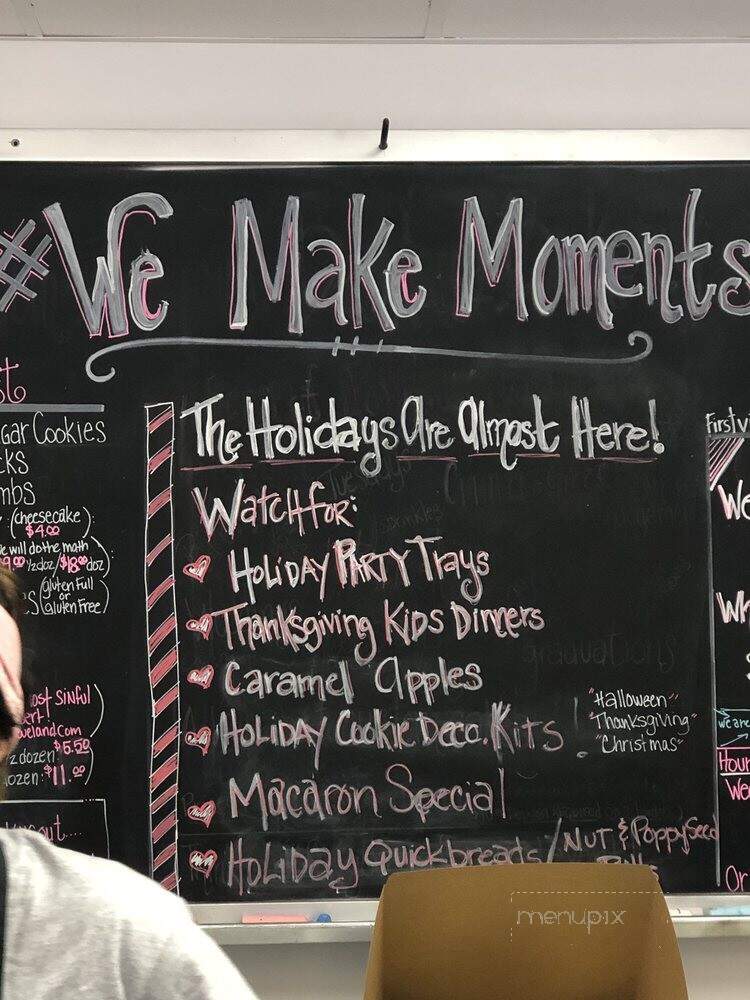 #We Make Moments
The Holidays Are Almost Here!
Watch for:
Holiday Party Trays
Thanksgiving Kids Dinners
Caramel Apples
Holiday Cookie Deco. Kits
"Halloween"
"Thanksgiving"
"Christmas"
Macaron Special
Holiday Quickbreads/Nut & PoppySeed
gar Cookies
(cheesecake)
$4.00
e will do the math
9.00 ½ doz/$18.00 doz
(gluten Full
or
Gluten Free)
ost sinful
veland.com
$5.50
ozen: $11.00
First v
We
Wh
we are
Hour
We
Or
menupix